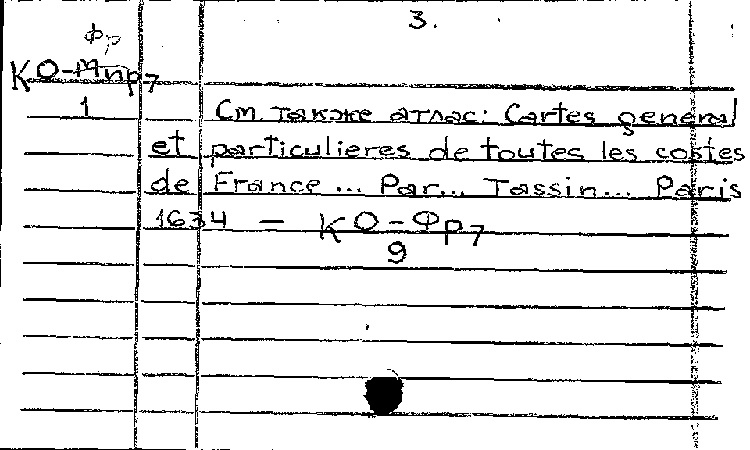 3.
Фр
КО-Мпр7
1
См. также атлас: Cartes general
et particulieres de toutes les costes
de France... Par... Tassin... Paris
1634 — КО-Фр7
9